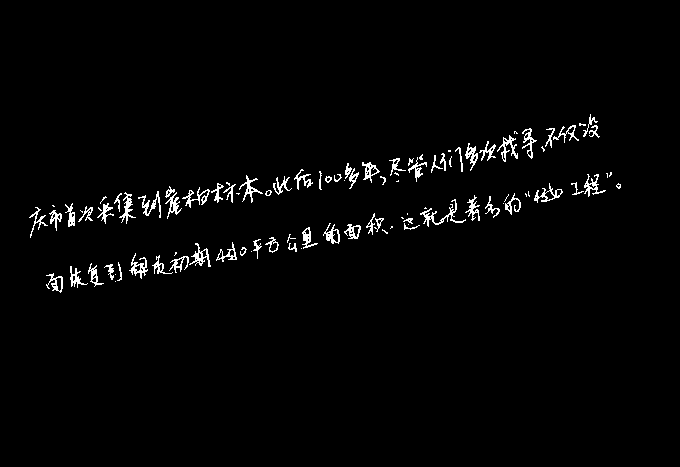 庆市首次采集到崖柏标本。此后100多年,尽管人们多次找寻,不仅没
面恢复到解放初期450平方公里的面积.这就是著名的“450工程”。